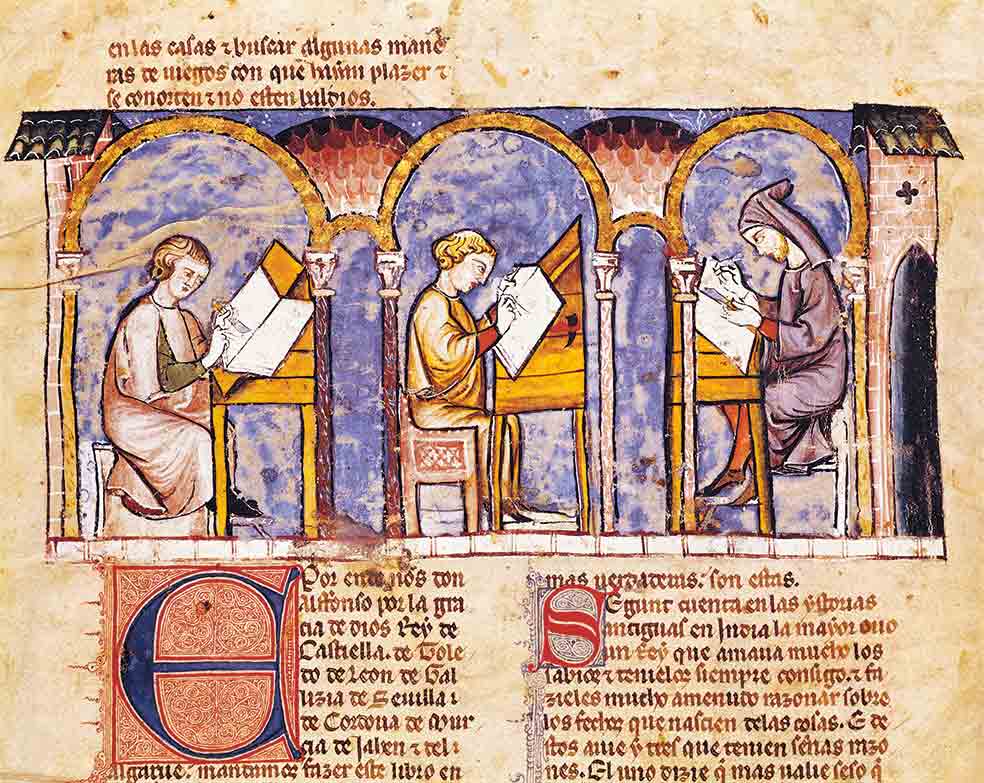 en las casas ⁊ buscar algunas mane
ras de iuegos con que hayan plazer ⁊
se conorten ⁊ no esten baldios.
E Por ende nos don
alffonso por la gra
cia de dios Rey de
Castiella. de Tole
do de Leon de Gal
lizia de Seuilla i
de Cordoua de Mur
cia de Jahen ⁊ del i
algarue. mandamos fazer este libro en
mas uerdaderas. son estas.
SEgunt cuenta en las ystorias
antiguas en India la mayor ouo
un Rey que amaua mucho los
sabios ⁊ tenielos siempre consigo. ⁊ fa
zieles mucho amenudo razonar sobre
los fechos que nascien delas cosas. E de
stos auie y tres que tenien sennas razo
nes. El uno dizie q̃ mas ualie seso q̃